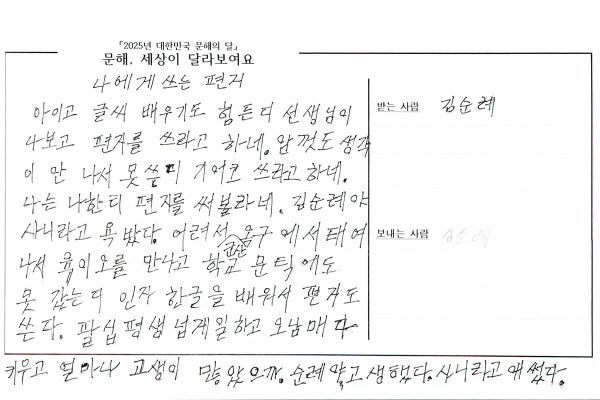 「2025년 대한민국 문해의 달」
문해, 세상이 달라보여요
나에게 쓰는 편지
아이고 글씨 배우기도 힘든디 선생님이
나보고 편지를 쓰라고 하네. 암껏도 생각
이 안 나서 못쓴디 기어코 쓰라고하네.
나는 나한티 편지를 써볼라네. 김순례야
사니라고 욕 밨다. 어려서 옹구에서 태여
군산
나서 육이오를 만나고 학교 문턱에도
못 갔는디 인자 한글을 배워서 편지도
쓴다. 팔십평생 넘게일하고 오남매 다
키우고 얼마나 고생이 많았으까. 순례야 고생했다. 사니라고 애썼다.
받는 사람 김순례
보내는 사람 김순례